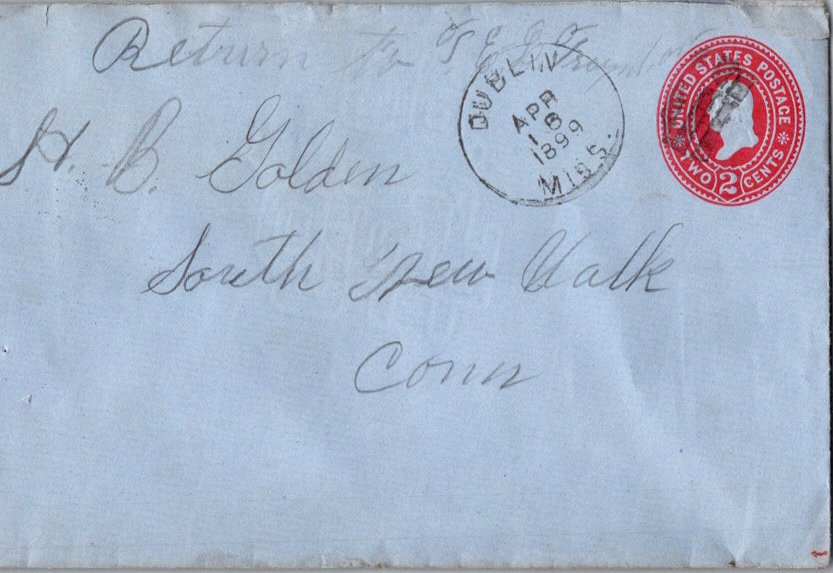 Return to T. E. L.
DUBLIN
APR
16
1899
MISS.
UNITED STATES POSTAGE
TWO 2 CENTS
H. B. Golden
South New Walk
Conn